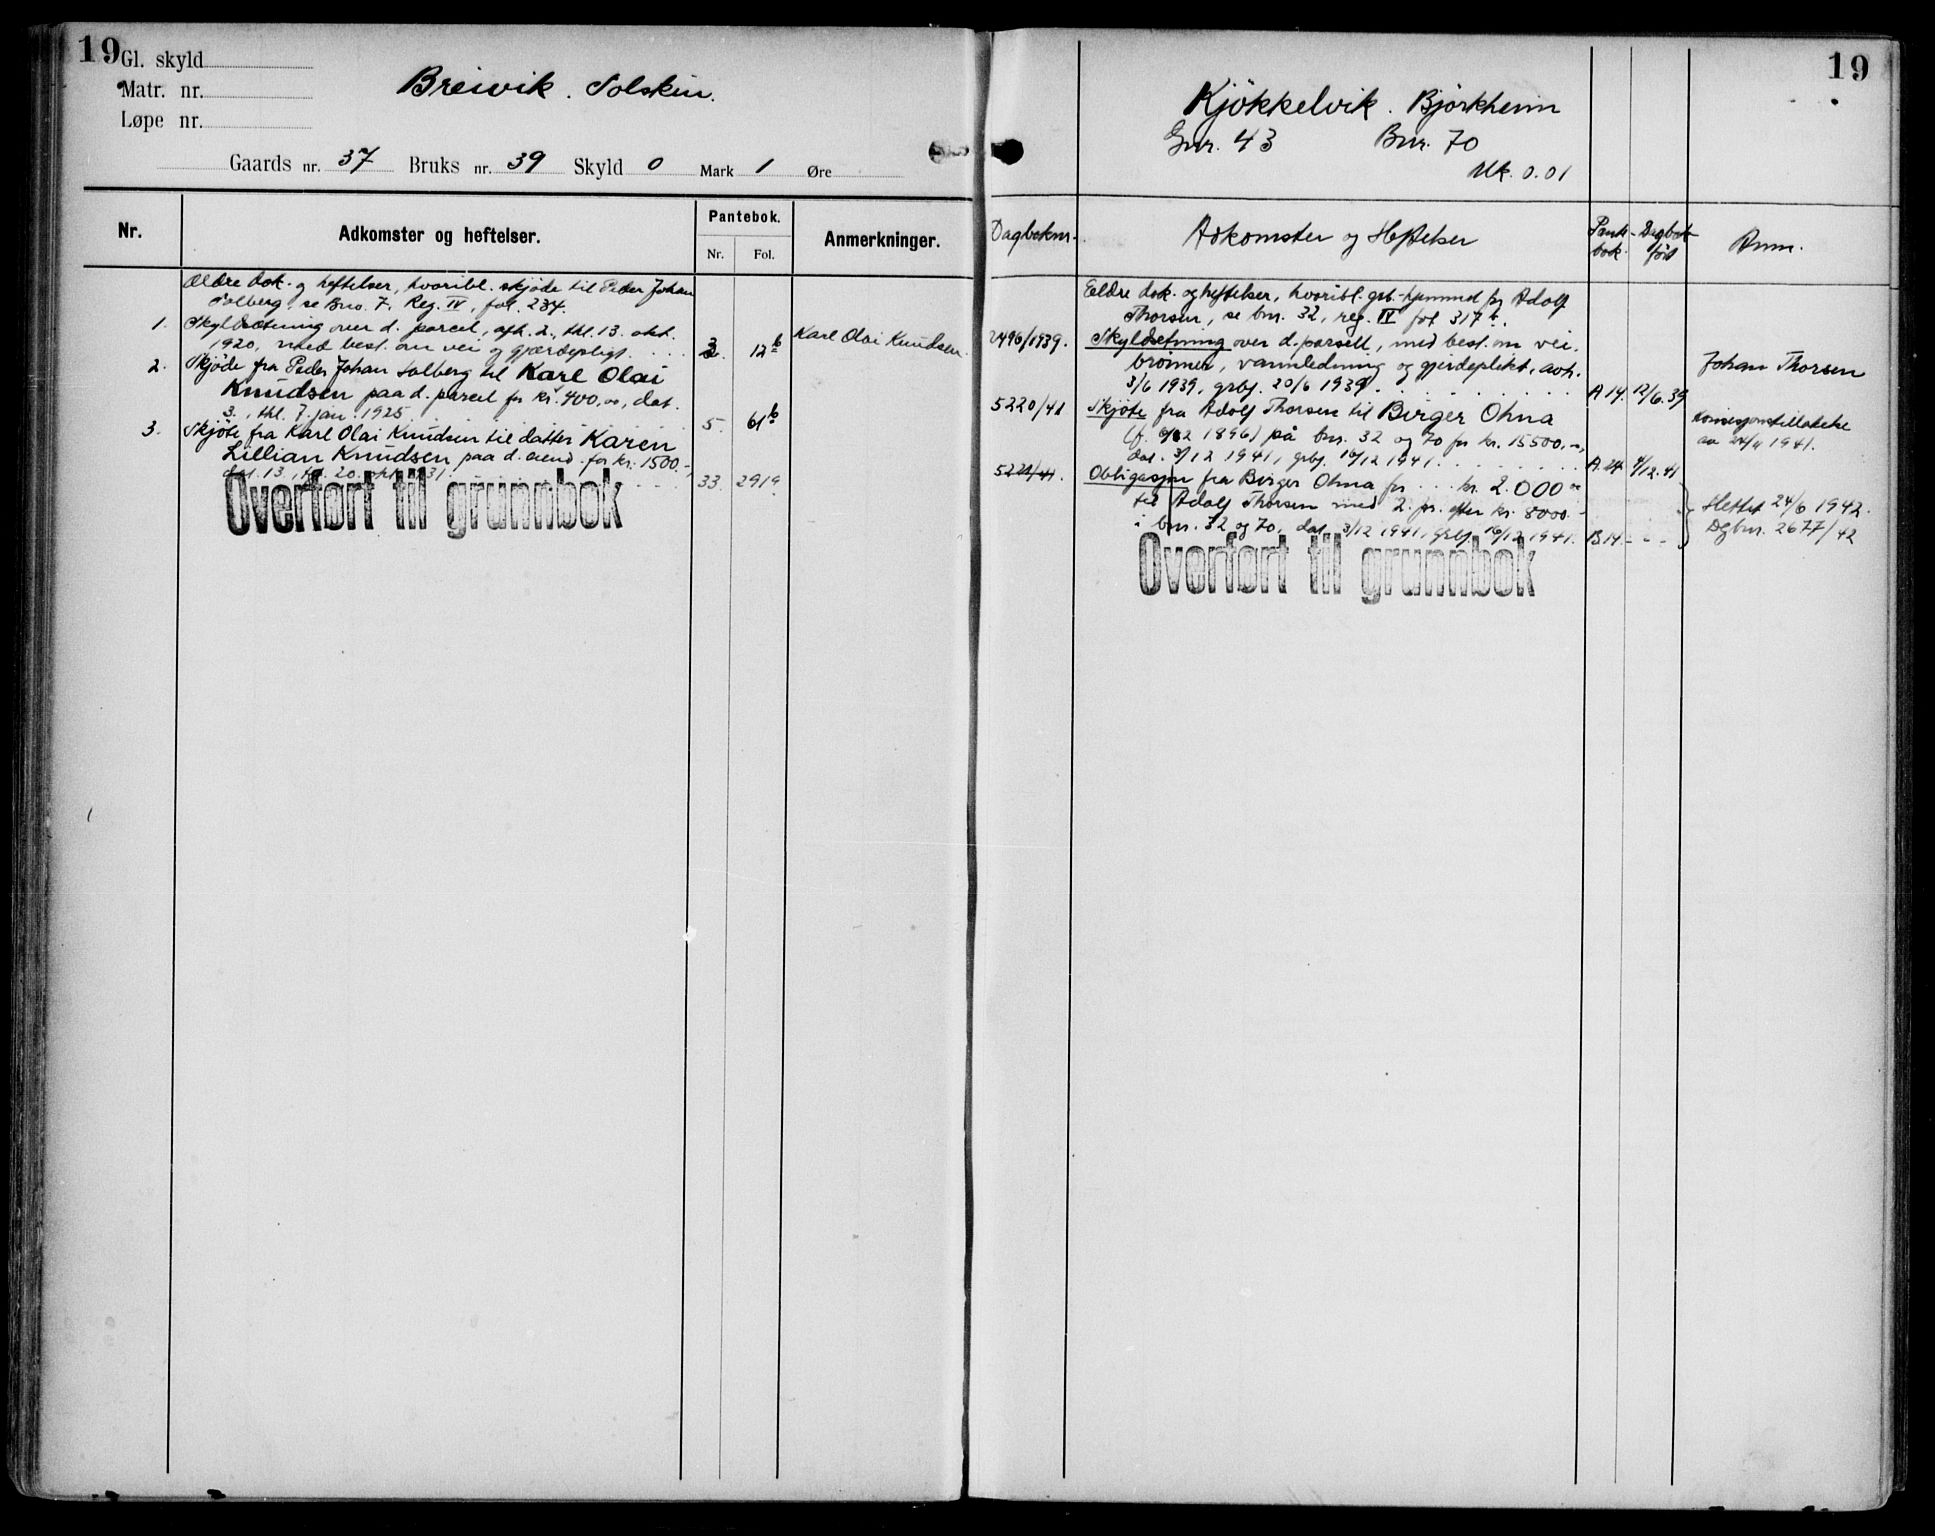 19
Gl. skyld
Matr. nr.
Løpe nr.
Breivik. Solskin.
Gaards nr. 37 Bruks nr. 39 Skyld 0 Mark 1 Øre
Nr. Adkomster og heftelser. Pantebok. Anmerkninger.
Nr. Fol.
Ældre dok. og heftelser, hvoribl. skjøde til Peder Johan
Solberg, se Bno. 7, Reg. IV, fol. 234.
1. Skyldsætning over d. parcel, afh. 2., thl. 13. okt.
1920, med best. om vei og gjærdepligt. 3 12 b Karl Olai Knudsen.
2. Skjøde fra Peder Johan Solberg til Karl Olai
Knudsen paa d. parcel for kr. 400,00, dat.
3., thl. 7. jan. 1925 5. 61 b
3. Skjøte fra Karl Olai Knudsen til datter Karen
Lillian Knudsen paa d. eiend. for kr. 1500.-
dat. 13., thl. 20. okt. 1931. 33. 291 a
Overført til grunnbok
19
Kjøkkelvik. Bjørkheim
Gnr. 43 Bnr. 70
Mk. 0.01
Dagboknr. Adkomster og Heftelser Pante-bok Dagbokført Anm.
Eeldre dok. og heftelser, hvoribl. grb.-hjemmel for Adolf
Thorsen, se bnr. 32, reg. IV fol 317 b.
2496/1939. Skyldsetning over d. parsell, med best. om vei,
brønner, vannledning og gjerdeplikt, avh.
3/6 1939, grbf. 20/6 1939. A 14. 12/6. 39 Johan Thorsen
5220/41 Skjøte fra Adolf Thorsen til Birger Ohna
(f. 1896) på bnr. 32 og 70 for kr. 15500,-,
dat. 3/12 1941, grbf. 16/12 1941. A. 24 4/12. 41
Konsesjonstillatelse
av 24/11 1941.
5221/41. Obligasjon fra Birger Ohna for kr. 2.000 00
til Adolf Thorsen med 2. pr. efter kr. 8000.-
i bnr. 32 og 70, dat. 3/12 1941, grbf. 16/12 1941. B 14. - - -
Slettet 24/6 1942.
Dgbnr. 2677/42
Overført til grunnbok